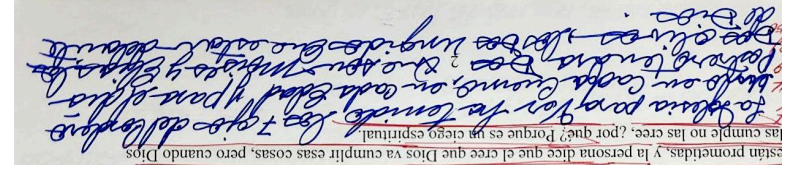 están prometidas, y la persona dice que el cree que Dios va cumplir esas cosas, pero cuando Dios
las cumple no las cree, ¿por qué? Porque es un ciego espiritual
La Iglesia para Ver ha tenido los 7 ojo del Cordero
en cada Cuerno, en cada Edad y para el dia
Postrero tendra Dos, Que son Moises y Elias, los
Dos olivos, los Dos ungidos que estan delante
de Dios